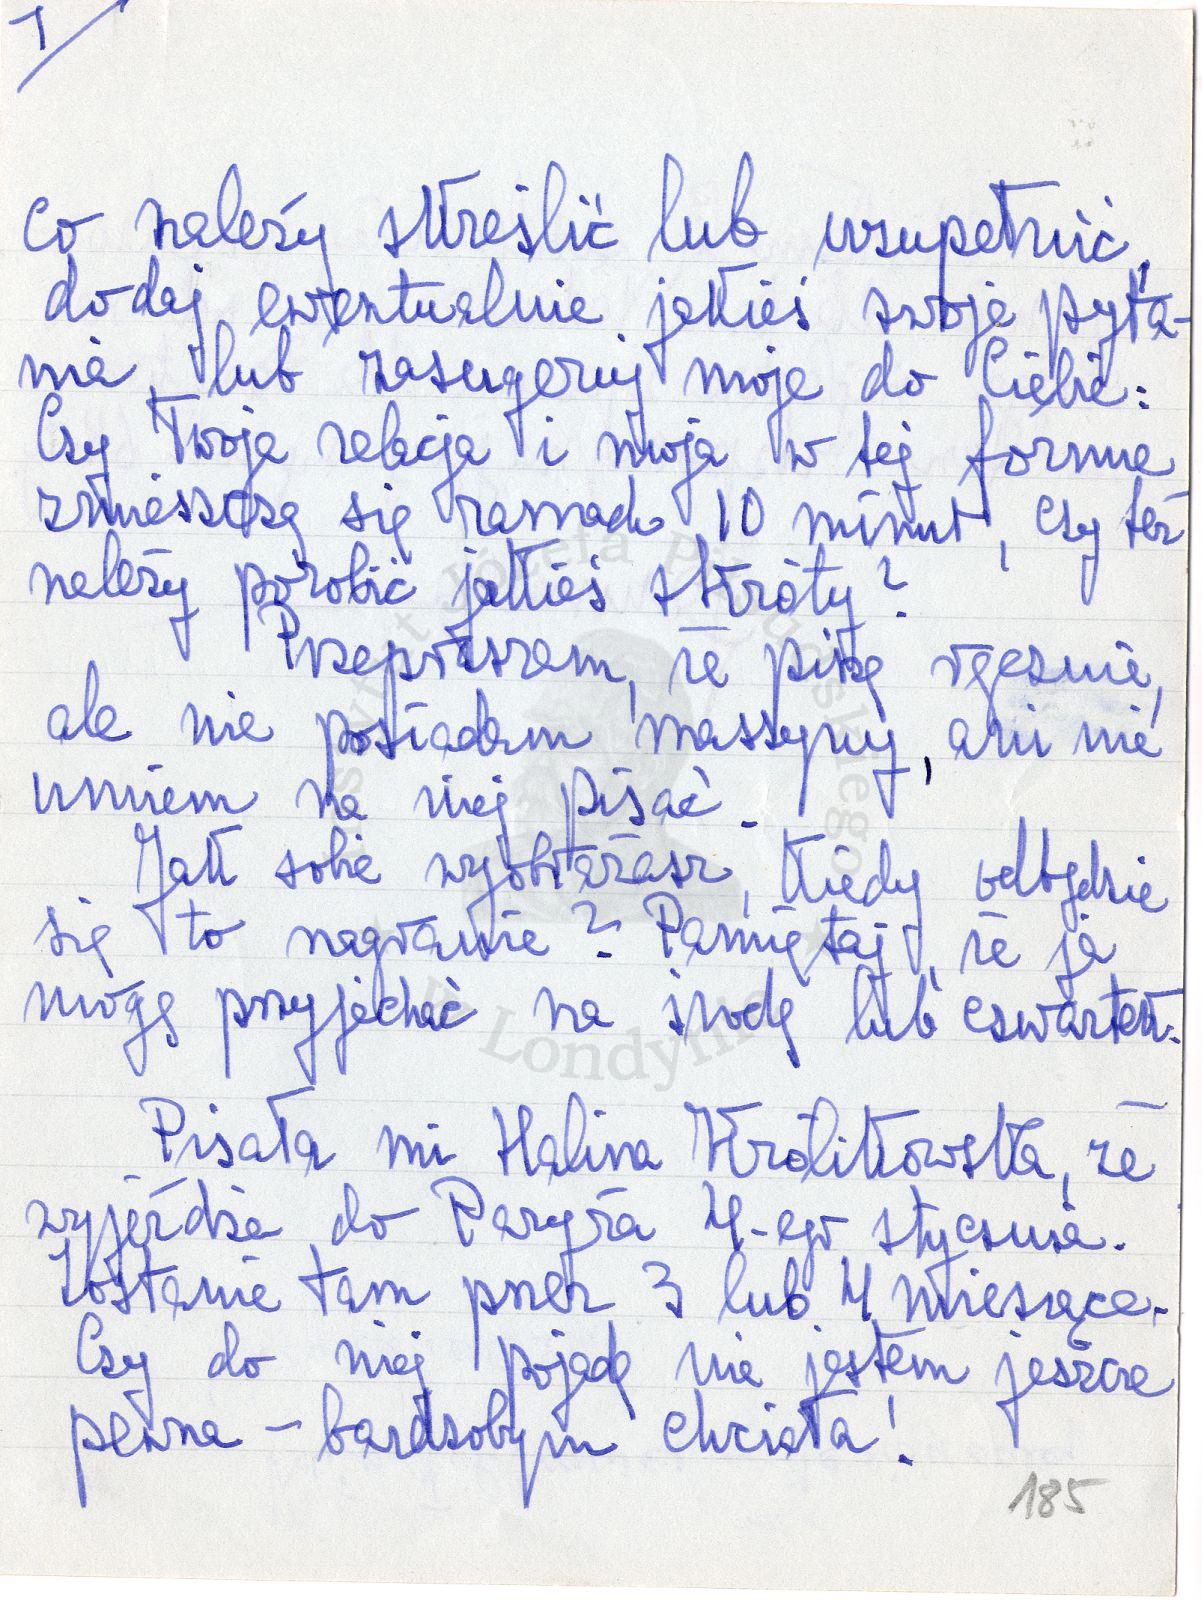 1/
co należy skreślić lub uzupełnić,
dodaj ewentualnie jakieś swoje pyta-
nia, lub zasugeruj moje do Ciebie.
Czy Twoja relacja i moja w tej formie
zmieszczą się w ramach 10 minut, czy też
należy porobić jakieś skróty?
Przepraszam, że piszę ręcznie,
ale nie posiadam maszyny, ani nie
umiem na niej pisać.
Jak sobie wyobrażasz, kiedy odbędzie
się to nagranie? Pamiętaj, że ja
mogę przyjechać na środę lub czwartek.
Pisała mi Halina Królikowska, że
wyjeżdża do Paryża 4-ego stycznia.
Zostanie tam przez 3 lub 4 miesiące.
Czy do niej pojadę nie jestem jeszcze
pewna – bardzobym chciała!
185
Instytut Józefa Piłsudskiego
w Londynie